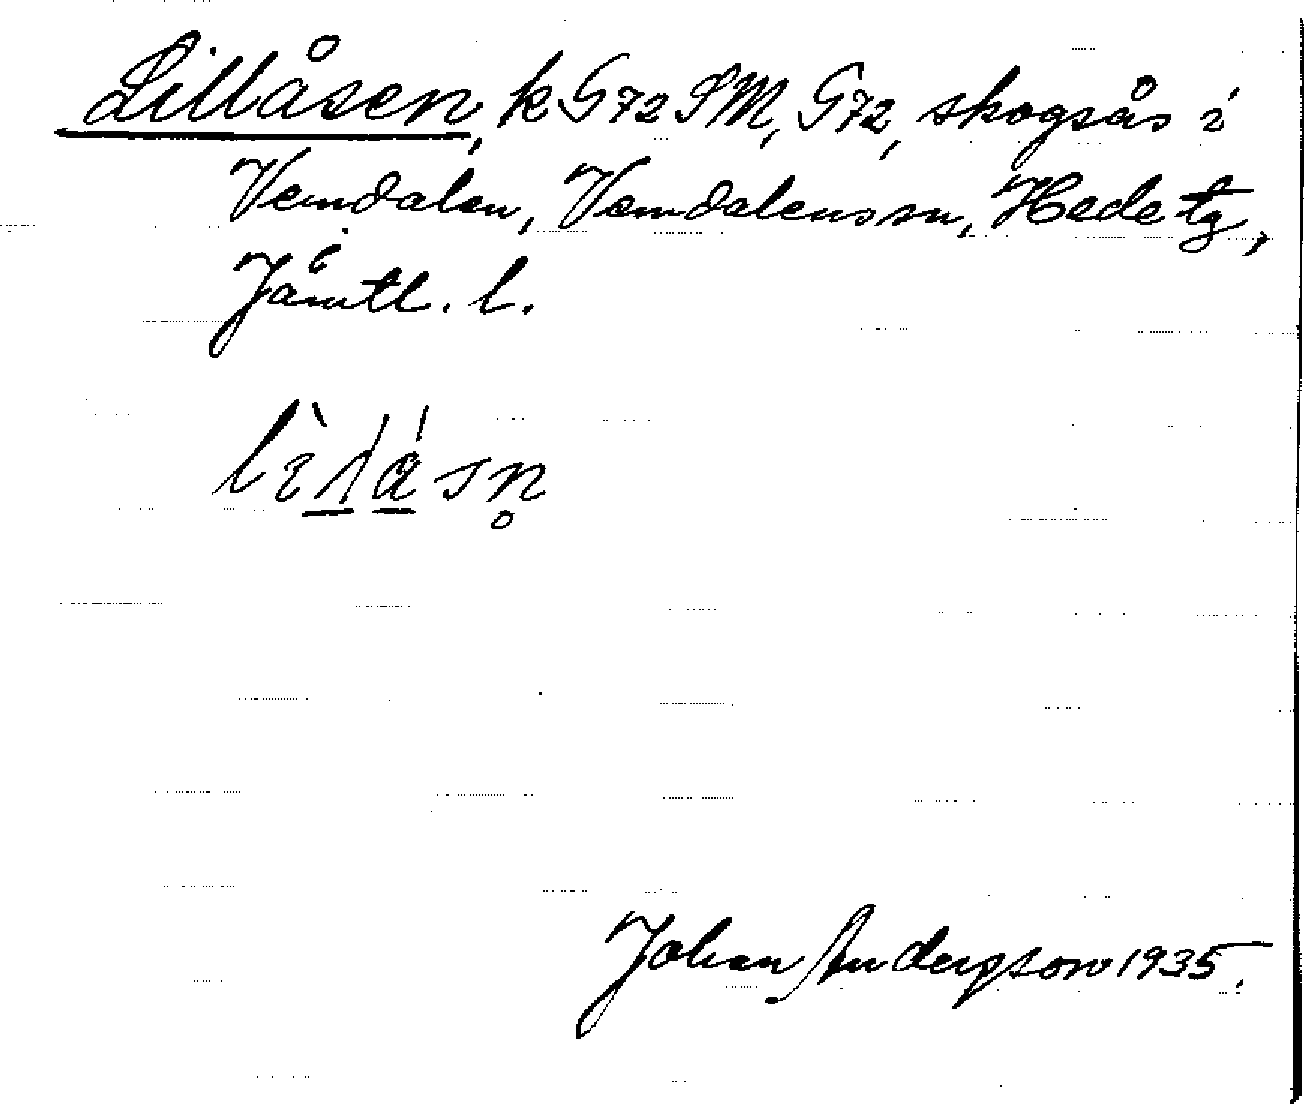 Lillåsen, k G72SM, G72, skogsås i
Vemdalen, Vemdalens sn, Hede tg,
Jämtl. l.
Johan Andersson 1935.